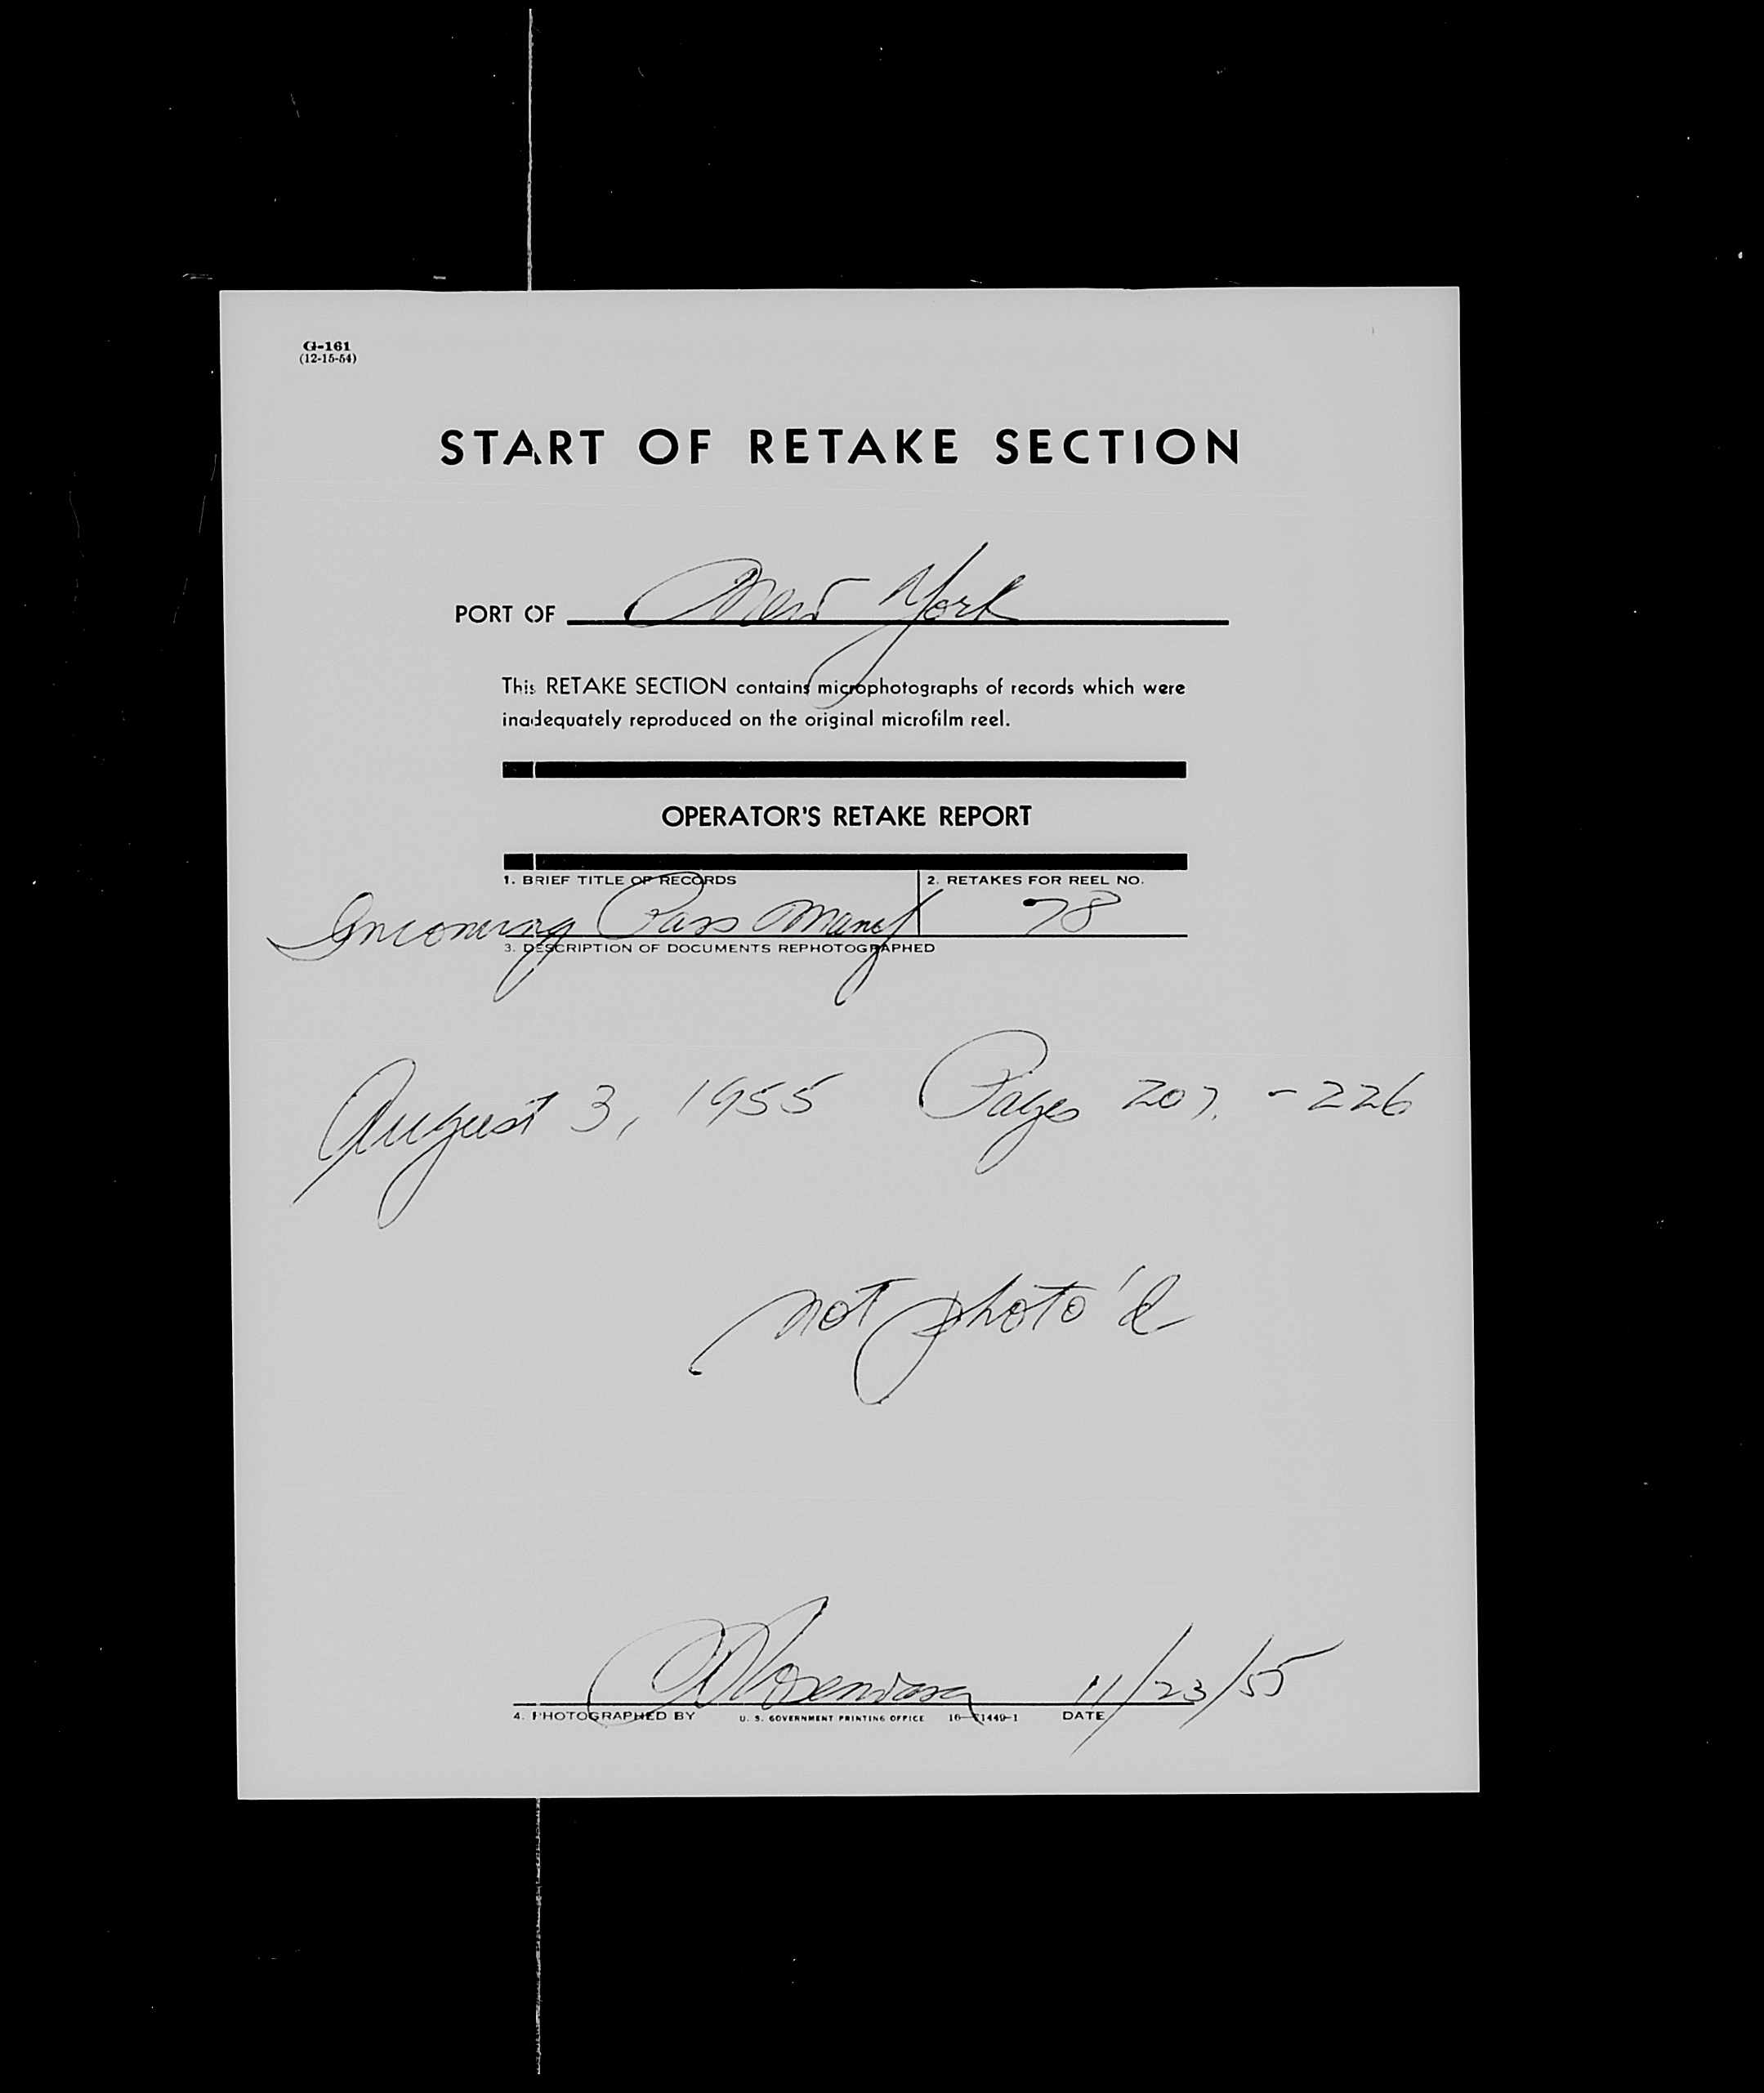 G-161
(12-15-54)
START OF RETAKE SECTION
PORT OF New York
This RETAKE SECTION contains microphotographs of records which were
inadequately reproduced on the original microfilm reel.
OPERATOR'S RETAKE REPORT
1. BRIEF TITLE OF RECORDS 2. RETAKES FOR REEL NO.
Incoming Pass Manif 78
3. DESCRIPTION OF DOCUMENTS REPHOTOGRAPHED
August 3, 1955 Pages 207. - 226
not photo'd
11/23/55
4. PHOTOGRAPHED BY U. S. GOVERNMENT PRINTING OFFICE 16—71449-1 DATE